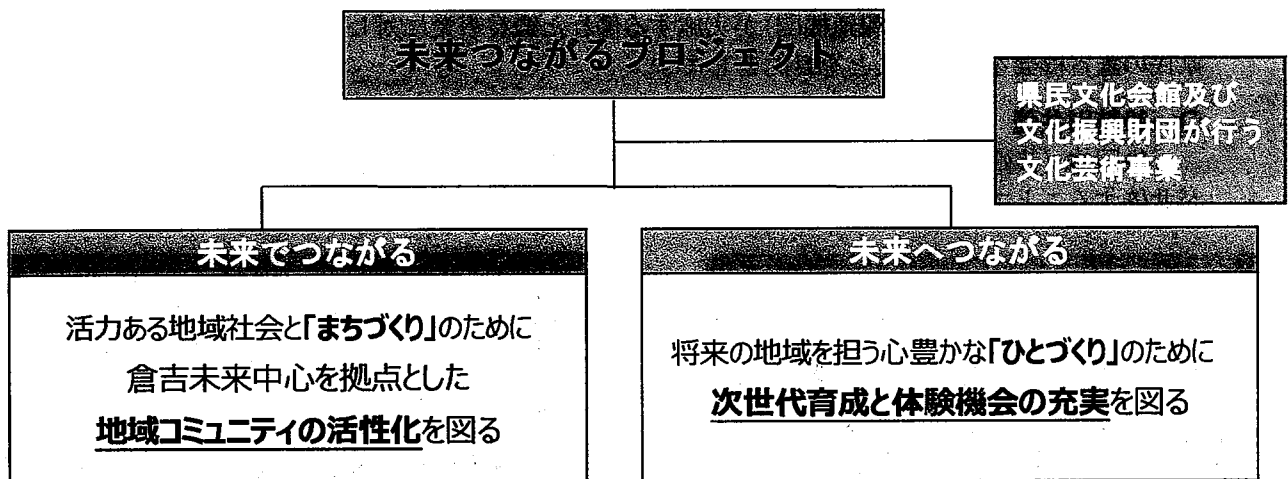 未来つながるプロジェクト
県民文化会館及び
文化振興財団が行う
文化芸術事業
未来でつながる
活力ある地域社会と「まちづくり」のために
倉吉未来中心を拠点とした
地域コミュニティの活性化を図る
未来へつながる
将来の地域を担う心豊かな「ひとづくり」のために
次世代育成と体験機会の充実を図る